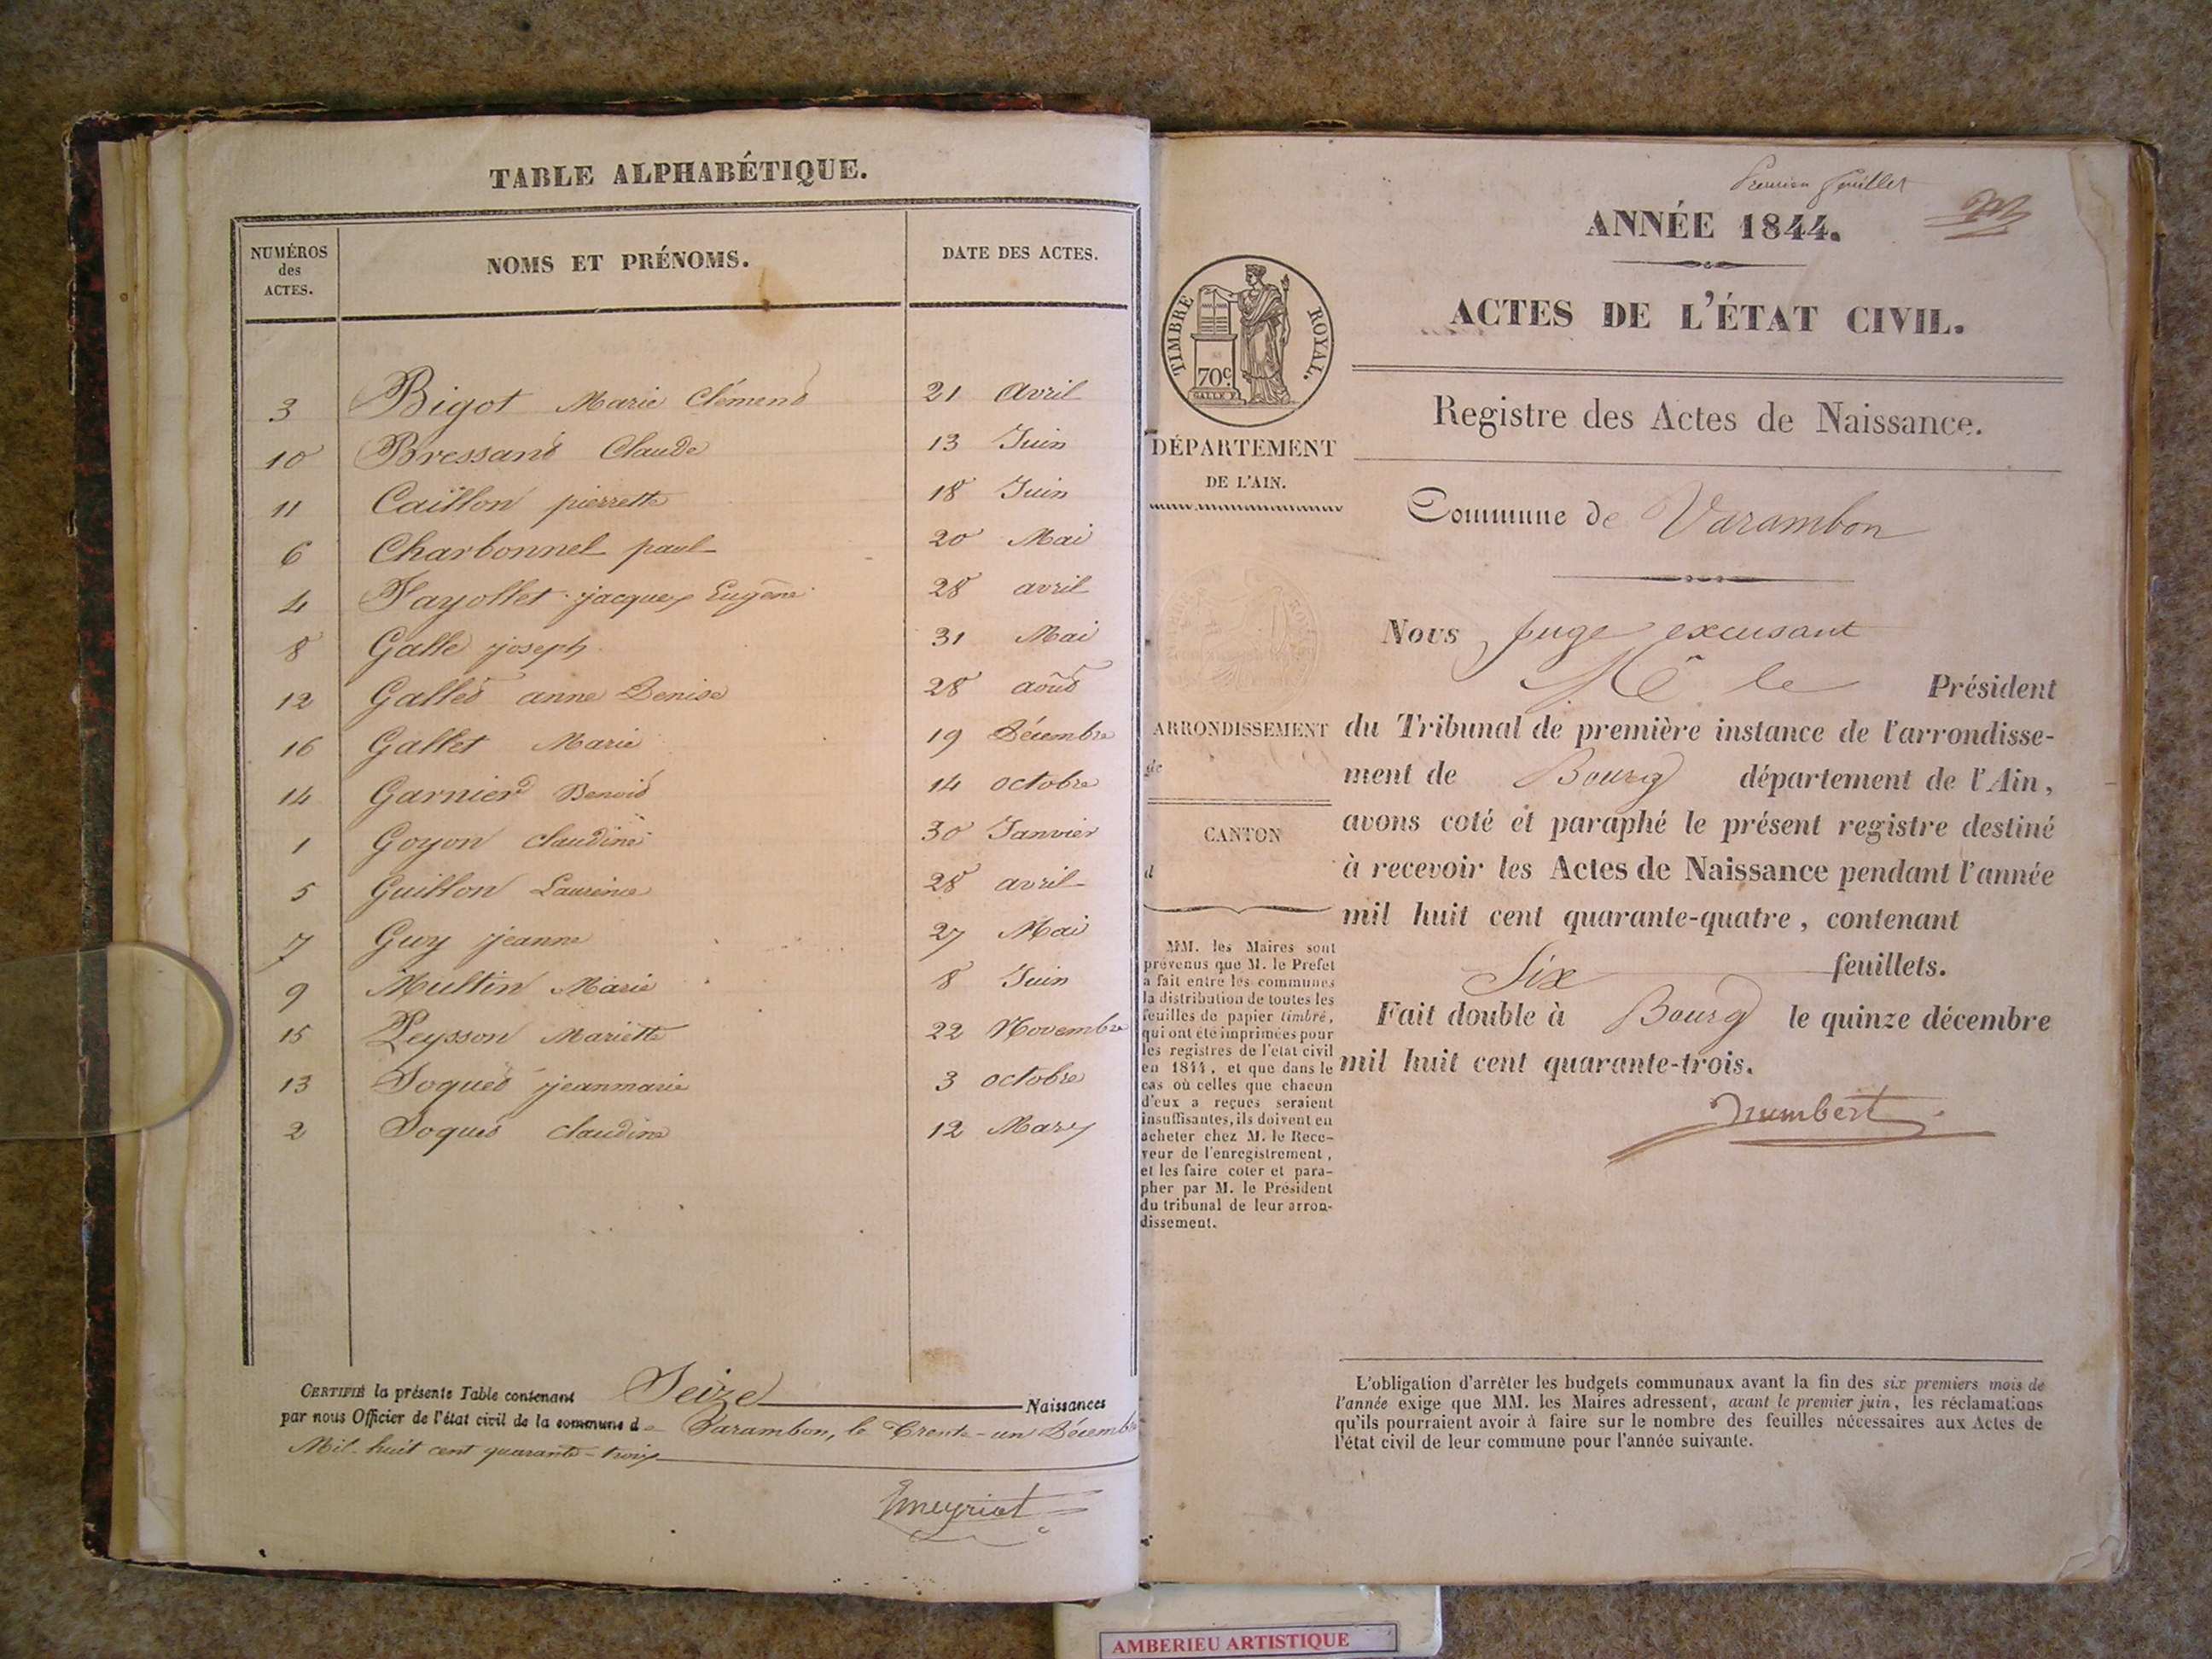 TABLE ALPHABÉTIQUE.
NUMÉROS
des
ACTES.
NOMS ET PRÉNOMS.
DATE DES ACTES.
3 Bigot Marie Clément 21 Avril
10 Bressand Claude 13 Juin
11 Caillon pierrette 18 Juin
6 Charbonnel paul 20 Mai
4 Fayollet jacques Eugène 28 avril
8 Galle joseph 31 Mai
12 Gallet anne Denise 28 août
16 Gallet Marie 19 Décembre
14 Garnier Benoit 14 octobre
1 Goyon claudine 30 Janvier
5 Guillon Laurence 28 avril
7 Guy jeanne 27 Mai
9 Multin Marie 8 Juin
15 Peysson Mariette 22 Novembre
13 Soquet jeanmarie 3 octobre
2 Soquet claudine 12 Mars
CERTIFIÉ la présente Table contenant Seize Naissances
par nous Officier de l'état civil de la commune de Varambon, le Trente-un Décembre
Mil huit cent quarante-trois
TIMBRE ROYAL.
70c.
DÉPARTEMENT
DE L'AIN.
ARRONDISSEMENT
de
CANTON
d
MM. les Maires sont
prévenus que M. le Préfet
a fait entre les communes
la distribution de toutes les
feuilles de papier timbré,
qui ont été imprimées pour
les registres de l'état civil
en 1844, et que dans le
cas où celles que chacun
d'eux a reçues seraient
insuffisantes, ils doivent en
acheter chez M. le Rece-
veur de l'enregistrement,
et les faire coter et para-
pher par M. le Président
du tribunal de leur arron-
dissement.
Premier feuillet
ANNÉE 1844.
ACTES DE L'ÉTAT CIVIL.
Registre des Actes de Naissance.
Commune de Varambon
Nous juge excusant
Mr le Président
du Tribunal de première instance de l'arrondisse-
ment de Bourg département de l'Ain,
avons coté et paraphé le présent registre destiné
à recevoir les Actes de Naissance pendant l'année
mil huit cent quarante-quatre, contenant
Six feuillets.
Fait double à Bourg le quinze décembre
mil huit cent quarante-trois.
L'obligation d'arrêter les budgets communaux avant la fin des six premiers mois de
l'année exige que MM. les Maires adressent, avant le premier juin, les réclamations
qu'ils pourraient avoir à faire sur le nombre des feuilles nécessaires aux Actes de
l'état civil de leur commune pour l'année suivante.
AMBERIEU ARTISTIQUE